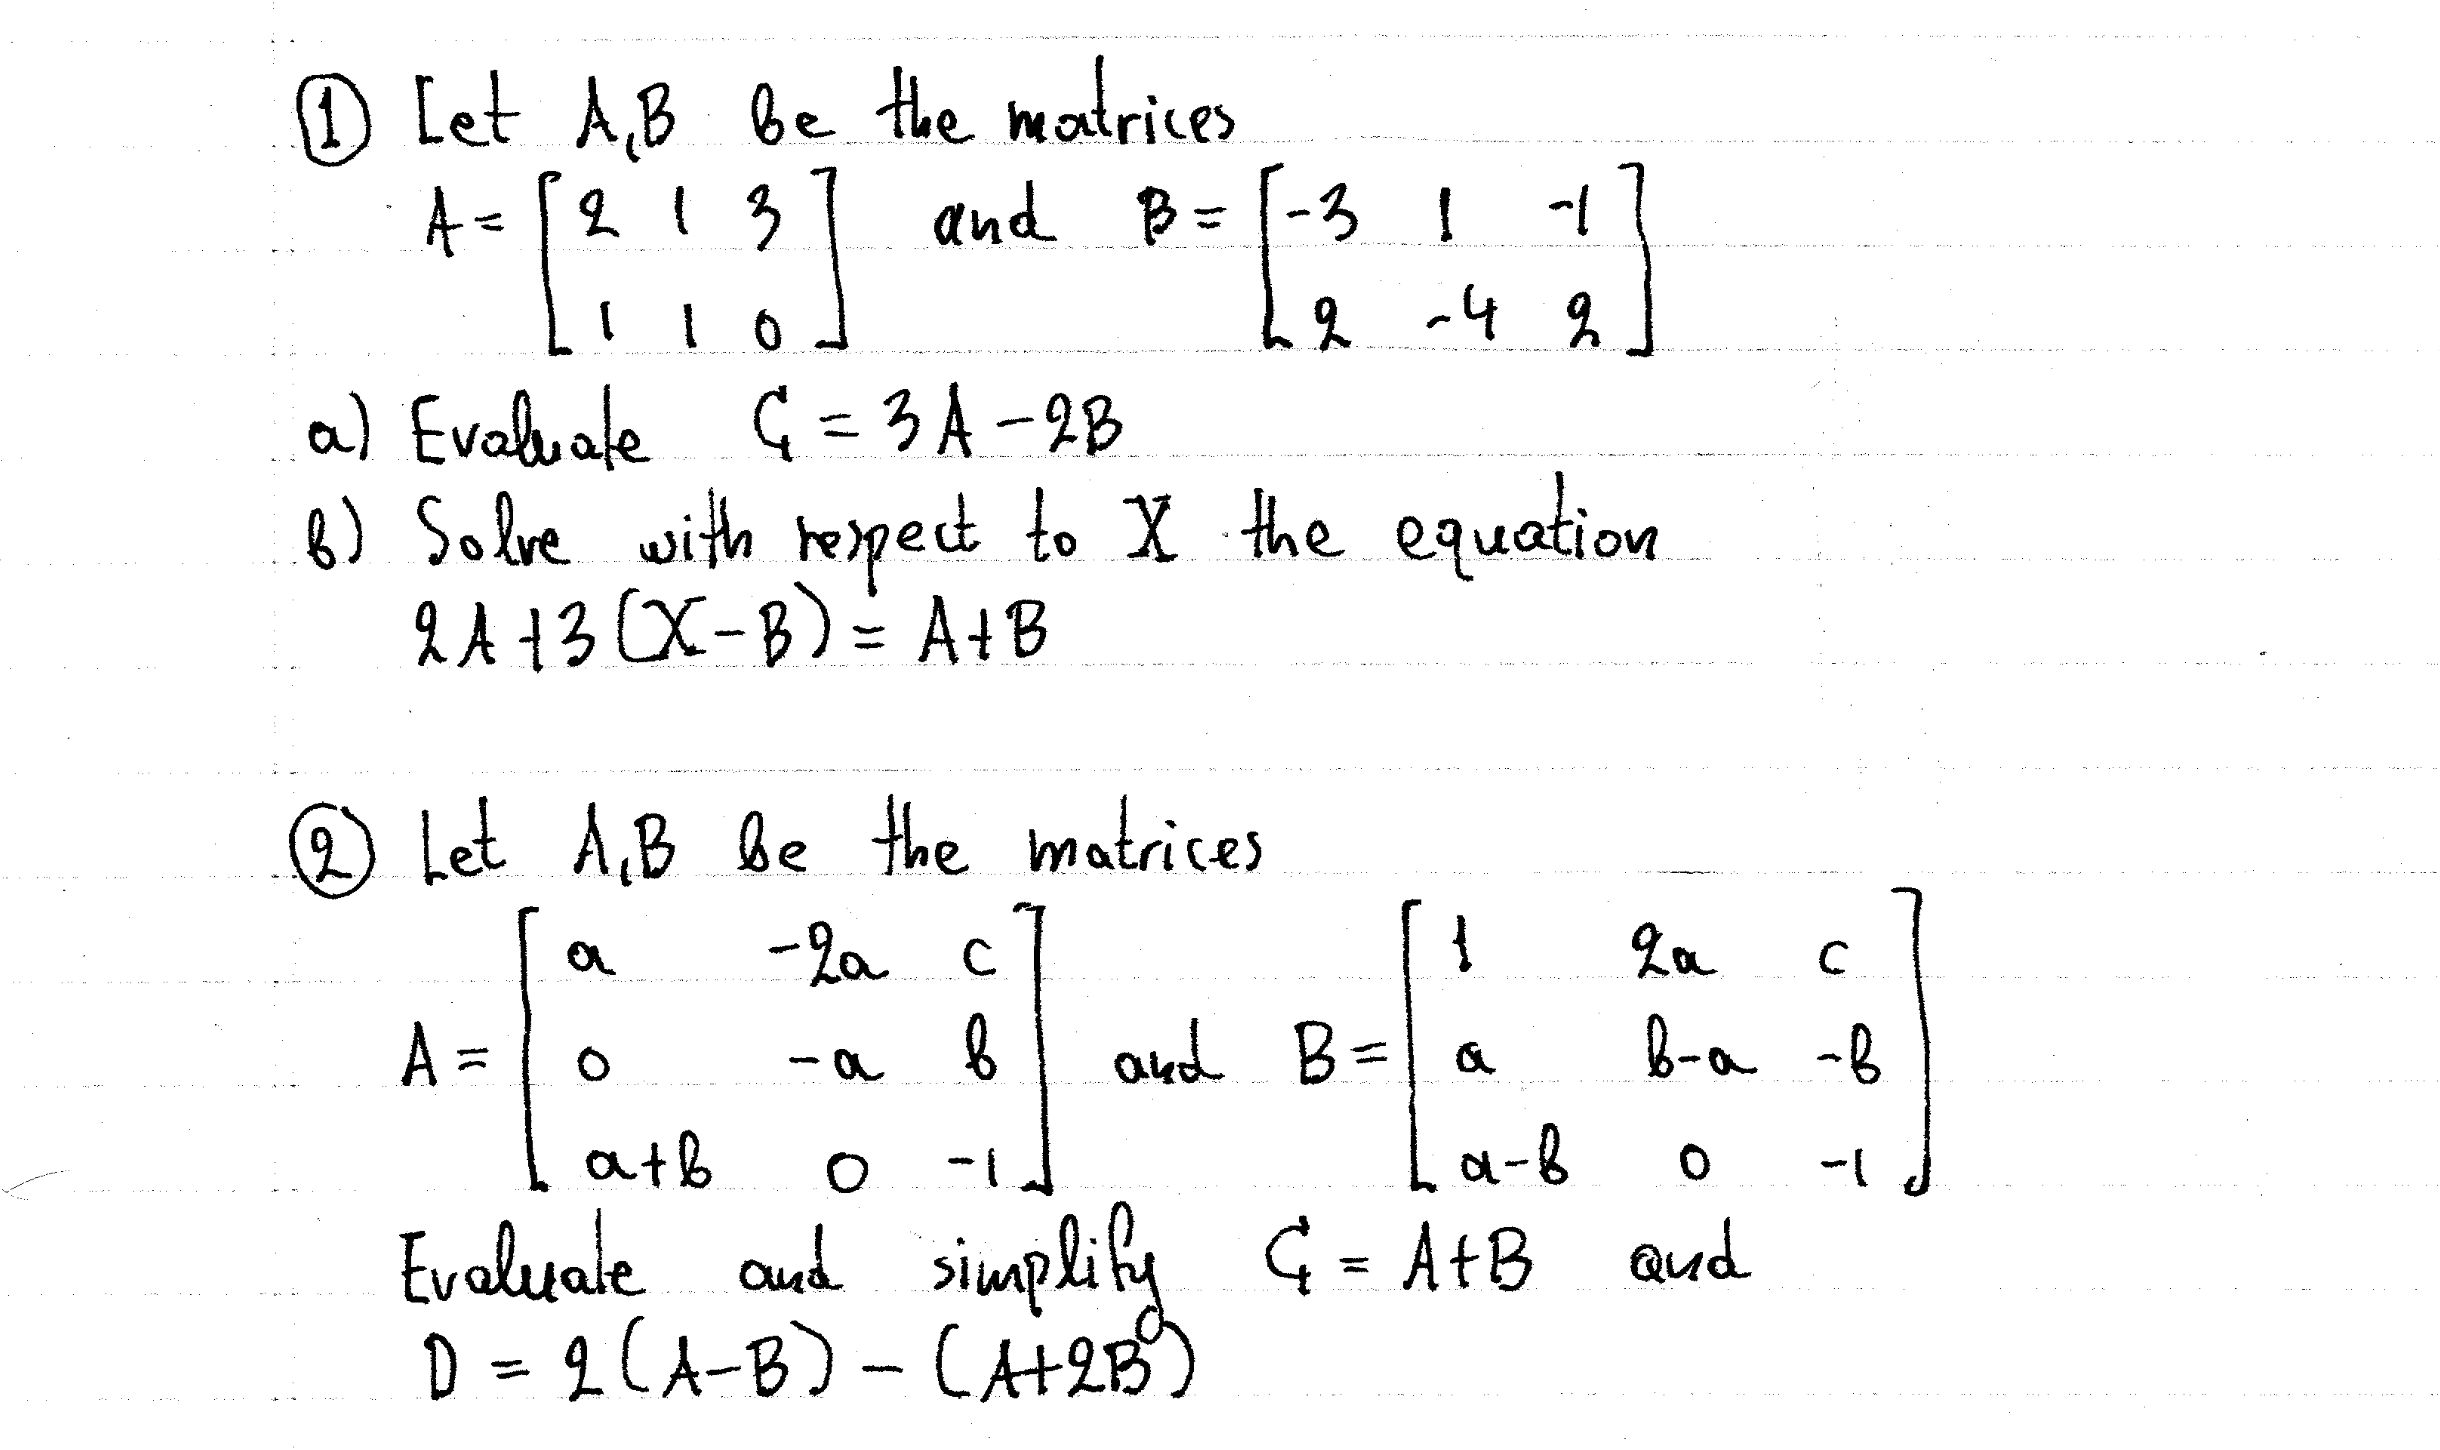 ① Let A,B be the matrices
A = [ 2 1 3 ; 1 1 0 ] and B = [ -3 1 -1 ; 2 -4 2 ]
a) Evaluate C = 3A - 2B
b) Solve with respect to X the equation
2A + 3(X - B) = A + B
② Let A,B be the matrices
A = [ a -2a c ; 0 -a b ; a+b 0 -1 ] and B = [ 1 2a c ; a b-a -b ; a-b 0 -1 ]
Evaluate and simplify C = A+B and
D = 2(A-B) - (A+2B)